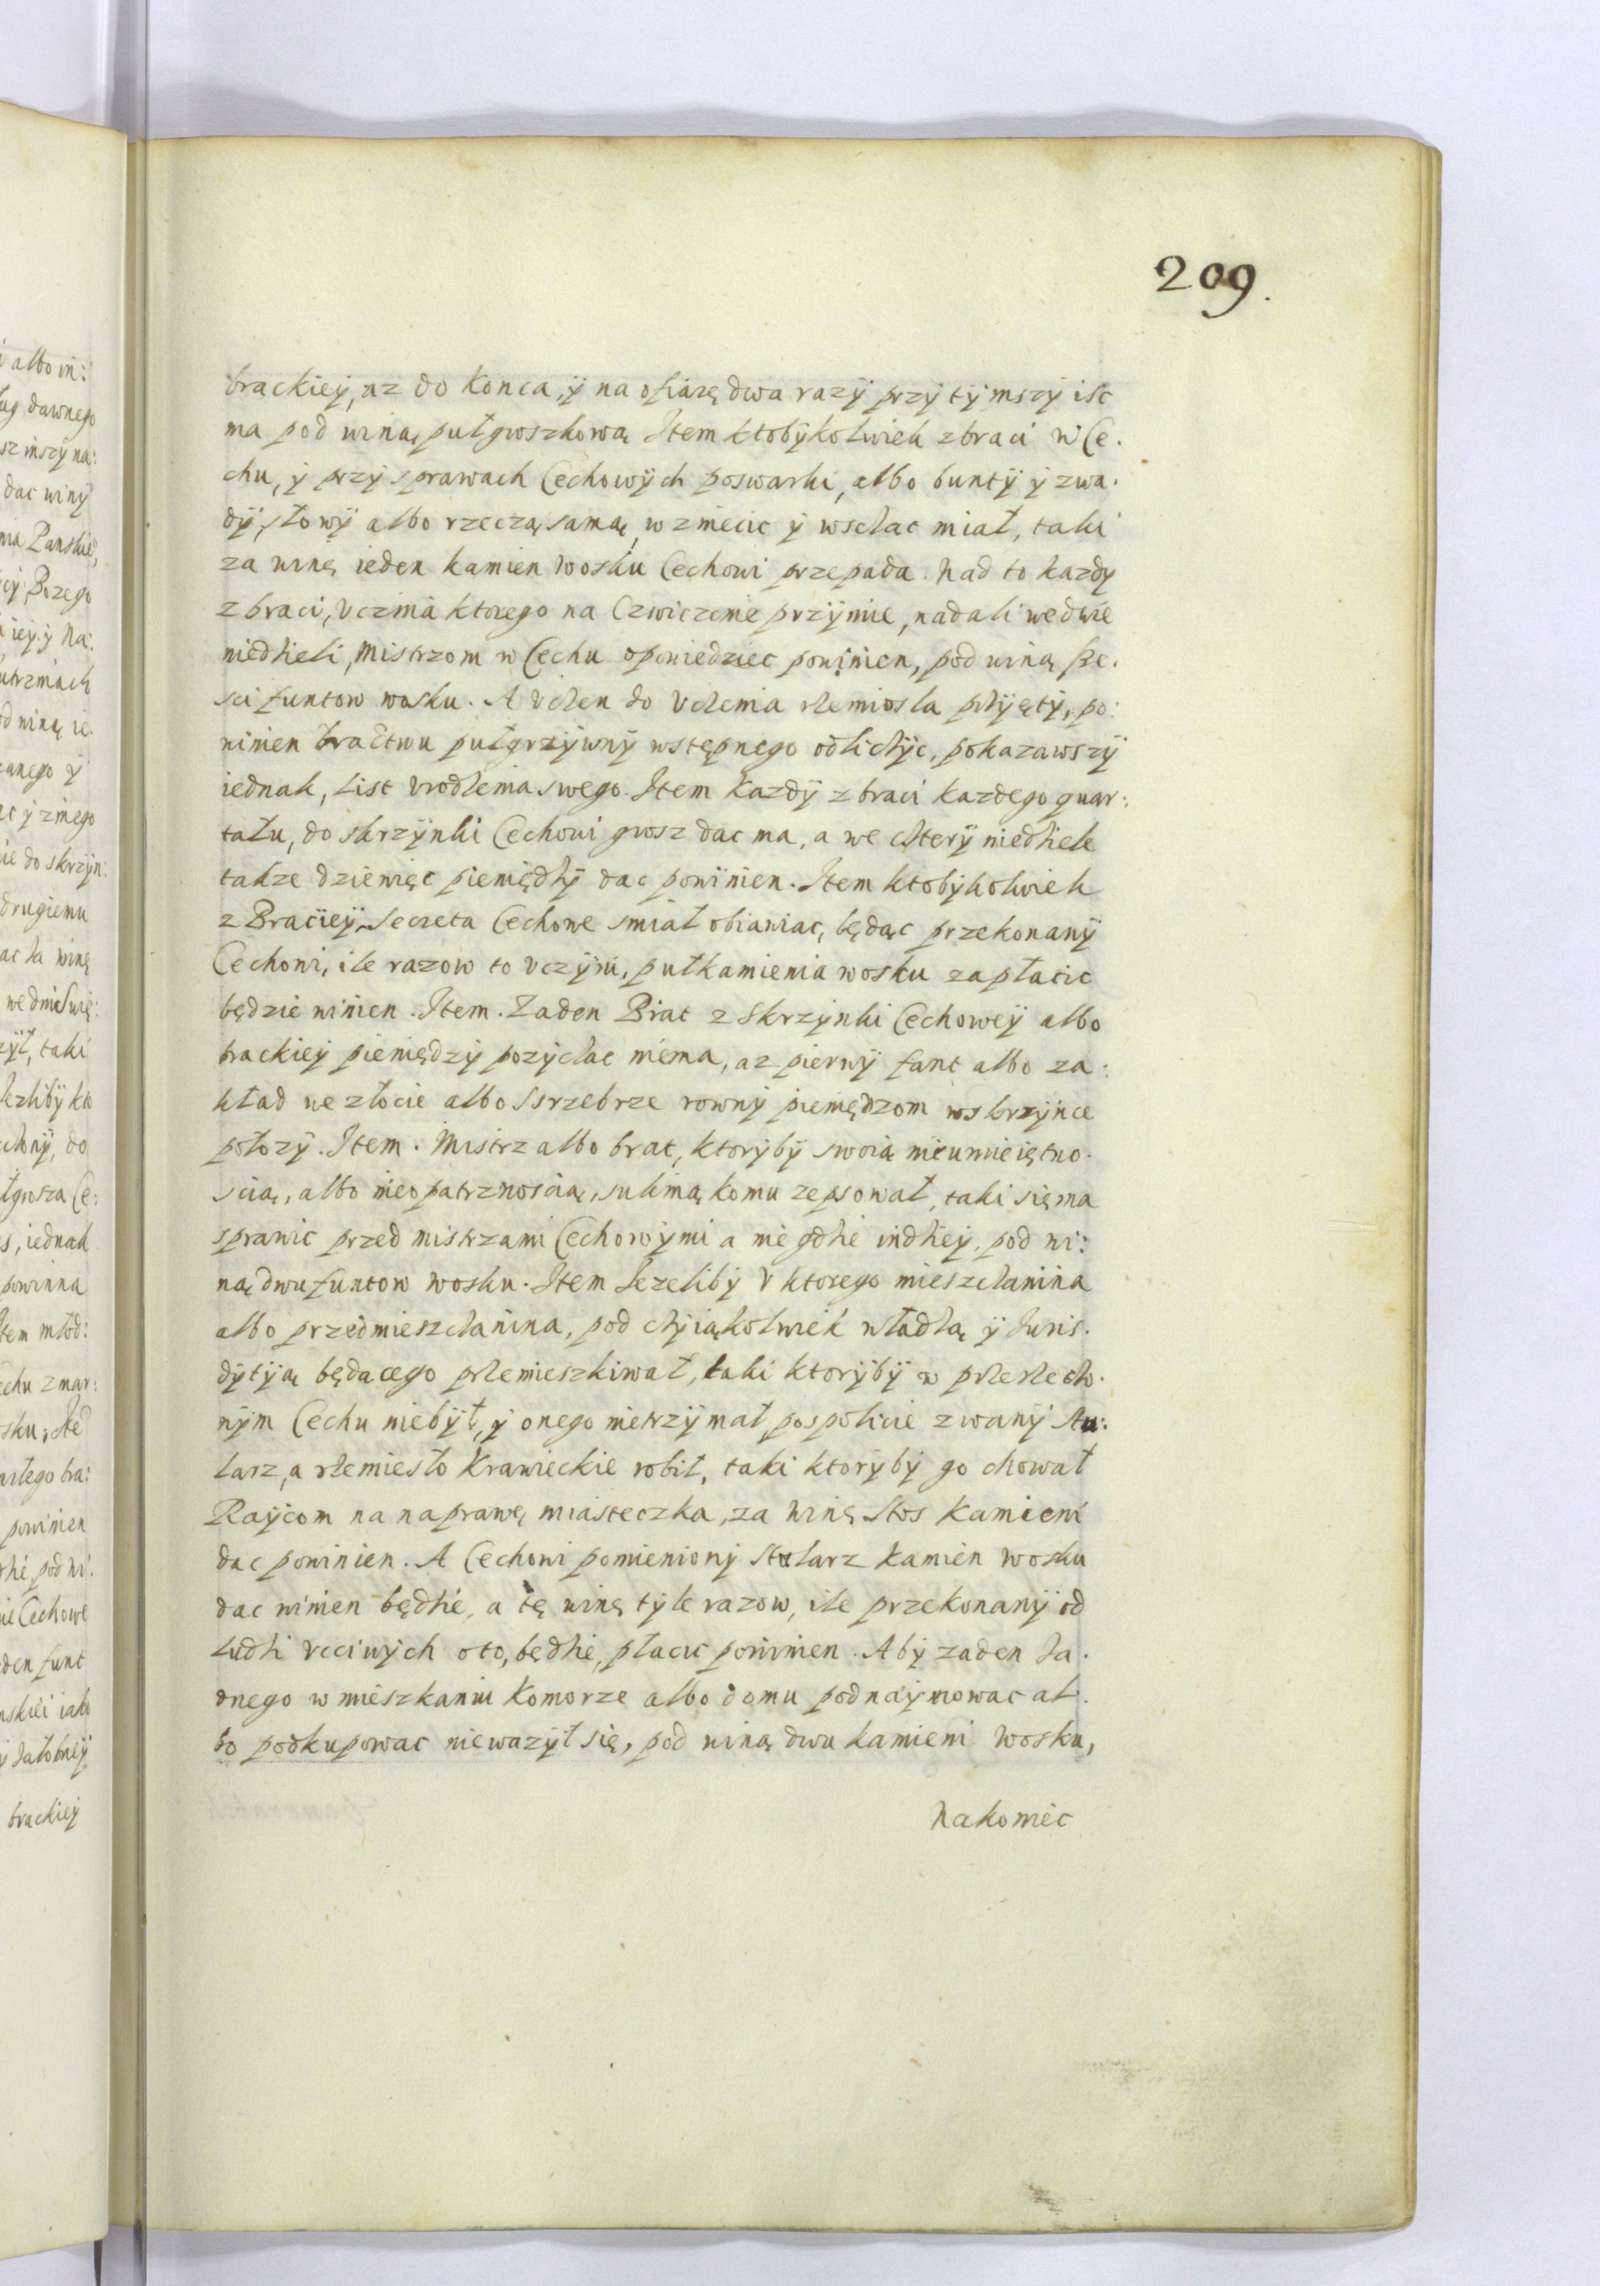 209.
brackiey, az do konca, y na ofiarę dwa razy przy tÿ mszy isc
ma pod winą pułgroszkową Item ktobykolwiek z braci w Ce.
chu, y przy sprawach Cechowych poswarki, albo bunty y zwa.
dÿ, słowÿ albo rzeczą samą, wzniecic y wsczac miał, taki
za winę ieden kamien wosku Cechowi przepada. Nad to kazdy
z braci, vcznia ktorego na Czwiczenie przÿmie, nadali we dwie
niedzieli, mistrzom w Cechu opowiedziec powinien, pod winą sze.
sci funtow wosku. A vczen do vczenia rzemiosła przÿięty, po:
winien bractwu pułgrzÿwnÿ wstępnego odliczÿc, pokazawszÿ
iednak, list vrodzenia swego. Item kazdÿ z braci kazdego quar:
tału, do skrzÿnki Cechowi grosz dac ma, a we czterÿ niedziele
takze dziewięc pieniędzÿ dac powinien. Item ktobÿkolwiek
z Braciiey, Secreta Cechowe smiał obiawiac, będąc przekonanÿ
Cechowi, ile razow to vczÿni, pułkamienia wosku zapłacic
będzie winien. Item. Zaden Brat z Skrzÿnki Cechoweÿ albo
brackieÿ pieniędzÿ pozÿczac niema, az pierwÿ fant albo za:
kład we złocie albo Ssrzebrze rownÿ pieniędzom w skrzÿnce
połozÿ. Item. Mistrz albo brat, ktorÿbÿ swoią nieumieiętno.
scią, albo nieopatrznoscią, suknią komu zepsował, taki się ma
sprawic przed mistrzami Cechowÿmi a nie gdzie indzieÿ, pod wi:
ną dwu funtow wosku. Item Iezelibÿ v ktorego mieszczanina
albo przedmieszczanina, pod czÿiąkolwiek władzą ÿ Iuris.
dÿtÿą będącego przemieszkiwał, taki ktorÿbÿ w przerzech.
nÿm Cechu niebÿł, ÿ onego nietrzÿmał, pospolicie zwanÿ Stu:
larz, a rzemiesło krawieckie robił, taki ktorÿbÿ go chował
Raÿcom na naprawę miasteczka, za winę stos kamieni
dac powinien. A Cechowi pomienionÿ Stularz kamien wosku
dac winien będzie, a tę winę tÿle razow, ile przekonanÿ od
Ludzi vcciwÿch o to, będzie, płacic powinien. Abÿ zaden za.
dnego w mieszkaniu komorze albo domu podnaÿmowac al.
bo podkupowac niewazÿł się, pod winą dwu kamieni wosku,
Nakoniec